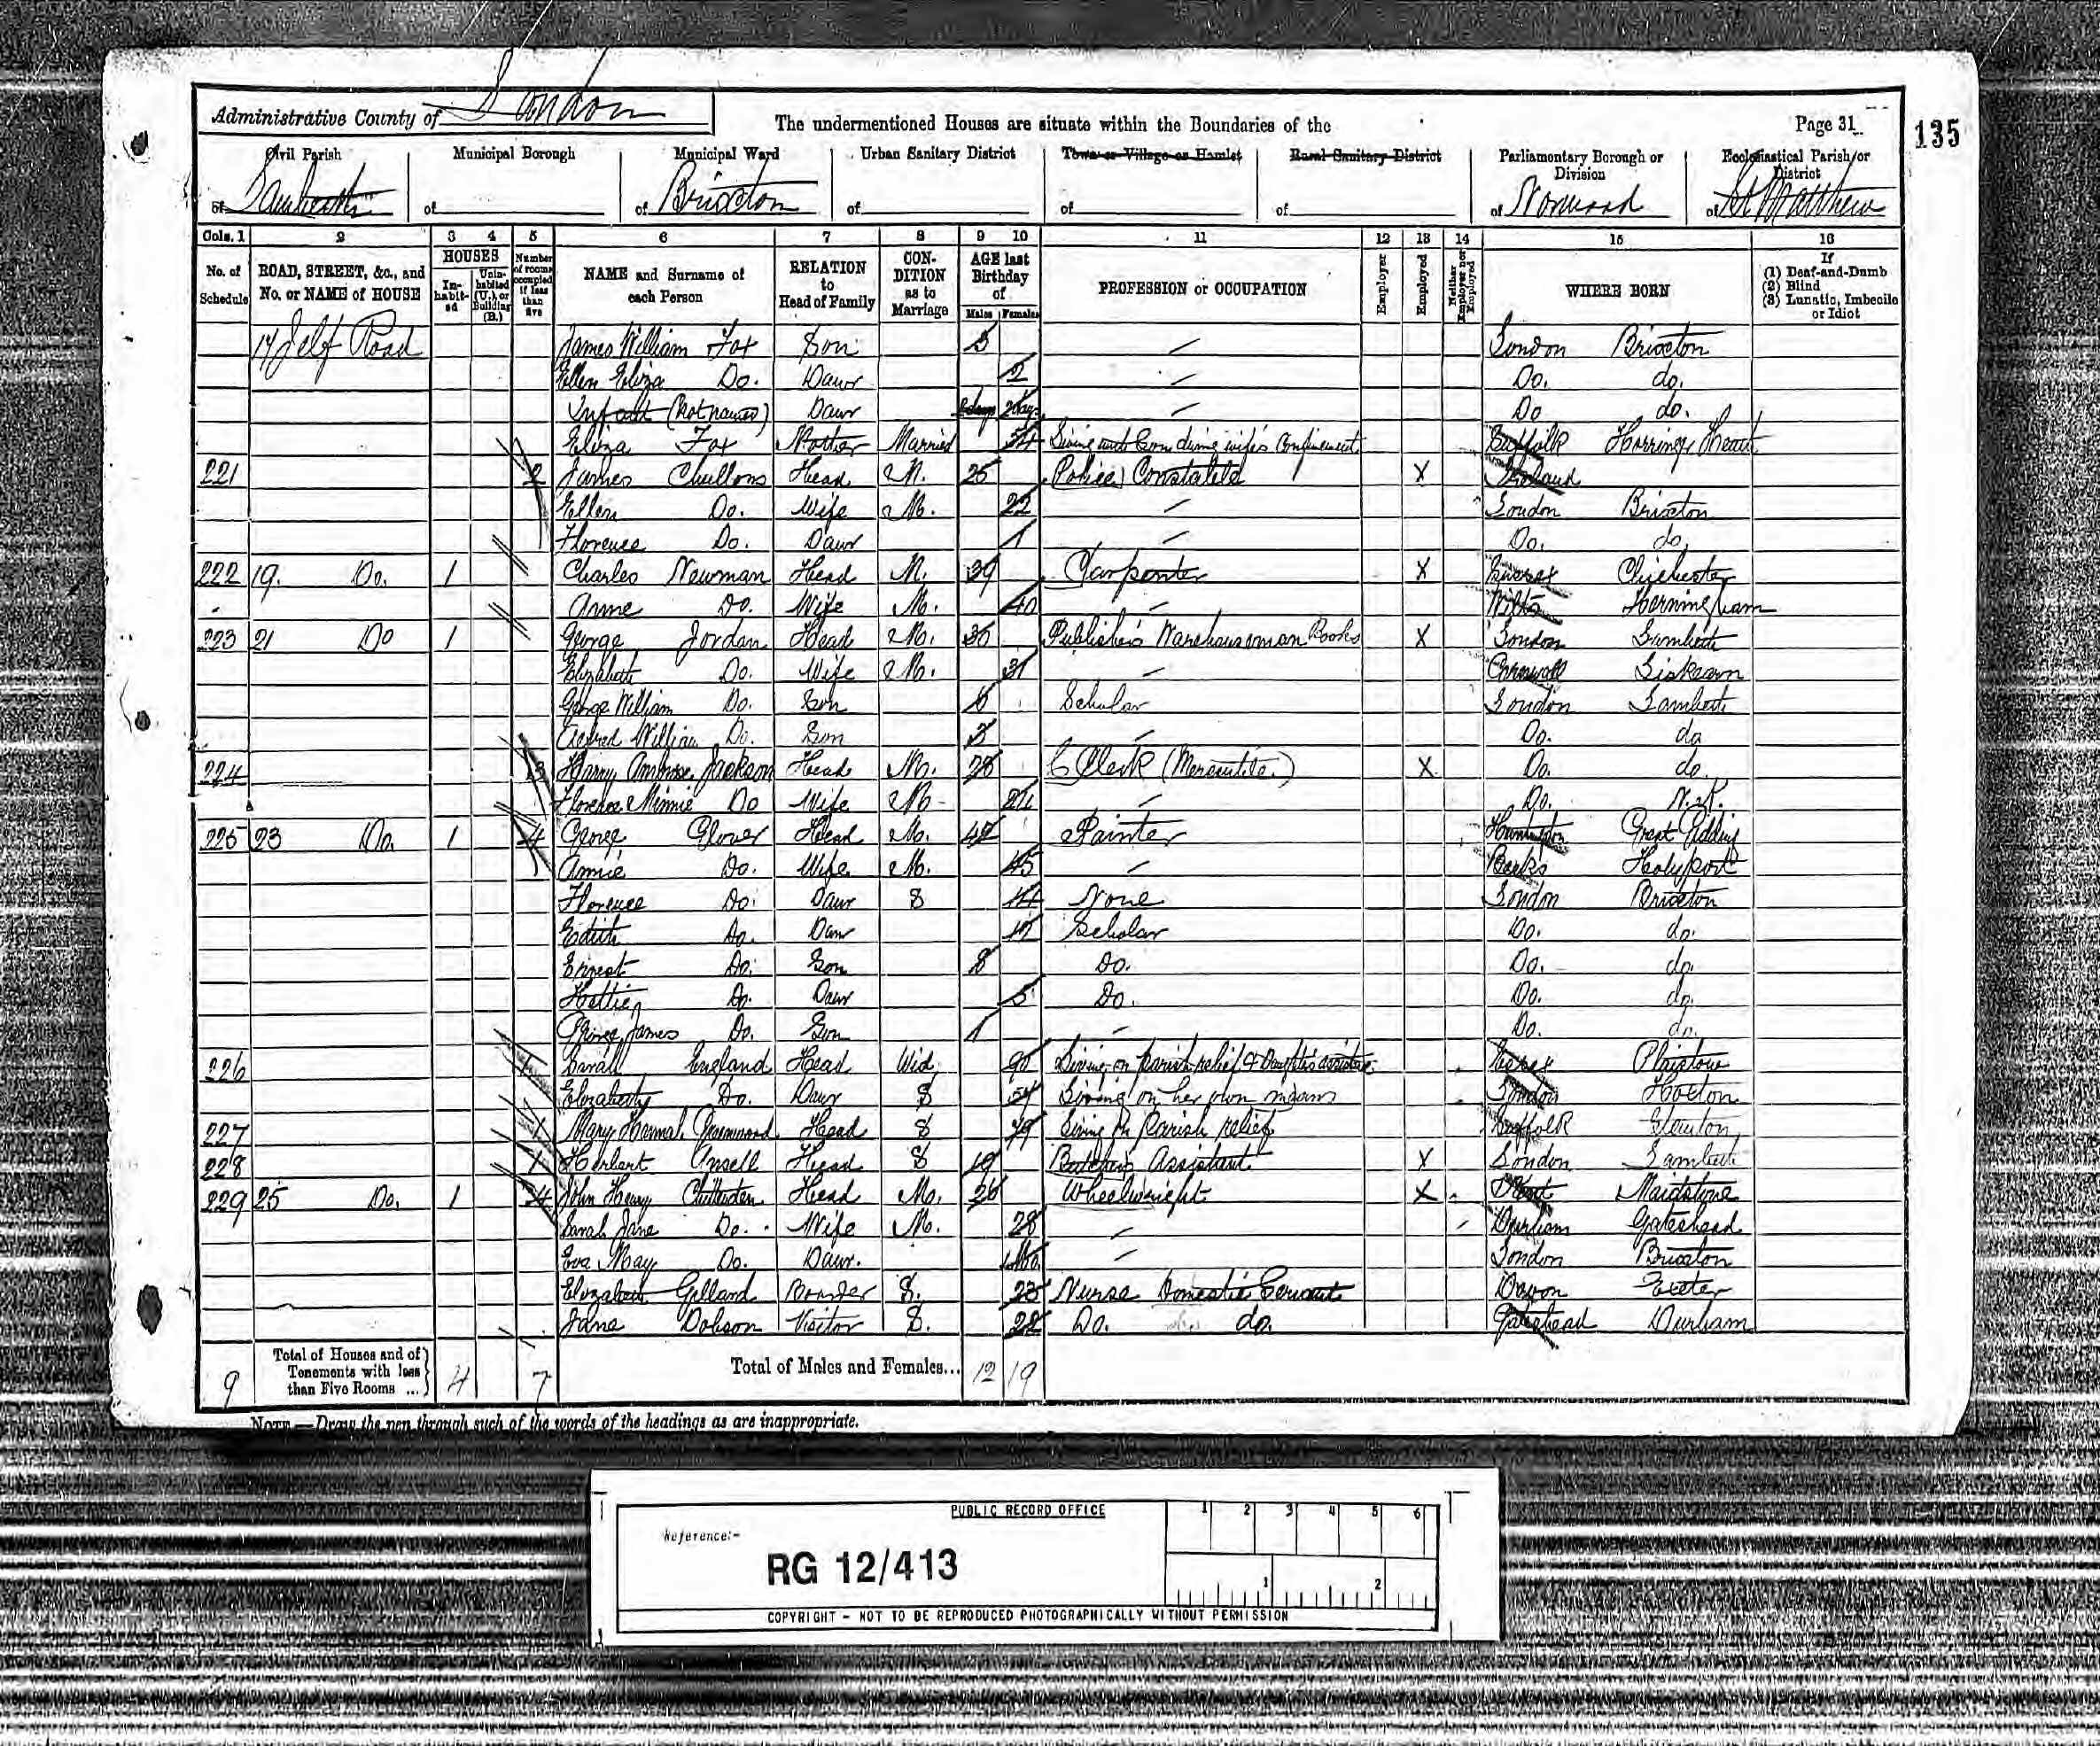 Administrative County of London
The undermentioned Houses are situate within the Boundaries of the
Page 31
135
Civil Parish of Lambeth
Municipal Borough of
Municipal Ward of Brixton
Urban Sanitary District of
Town or Village or Hamlet of
Rural Sanitary District of
Parliamentary Borough or Division of Norwood
Ecclesiastical Parish or District of St Matthew
Cols. 1 2 3 4 5 6 7 8 9 10 11 12 13 14 15 16
No. of Schedule
ROAD, STREET, &c., and No. or NAME of HOUSE
HOUSES
In-habit-ed
Unin-habited (U.), or Building (B.)
Number of rooms occupied if less than five
NAME and Surname of each Person
RELATION to Head of Family
CON-DITION as to Marriage
AGE last Birthday of
Males Females
PROFESSION or OCCUPATION
Employer
Employed
Neither Employer nor Employed
WHERE BORN
If
(1) Deaf-and-Dumb
(2) Blind
(3) Lunatic, Imbecile or Idiot
17 Jelf Road James William Fox Son 5 London Brixton
Ellen Eliza Do. Daur 2 Do. do.
Infant (not named) Daur 2 days 2 days Do do.
Eliza Fox Mother Married 54 Living during wife's Confinement Suffolk
221 2 James Head M. 25 Police Constable X
Ellen Do. Wife M. 22 London Brixton
Florence Do. Daur 1 Do. do.
222 19. Do. 1 Charles Newman Head M. 39 Carpenter X Sussex Chichester
Anne Do. Wife M. 40 Wilts Horningham
223 21 Do 1 George Jordan Head M. 30 Publisher's Warehouseman Books X London Lambeth
Elizabeth Do. Wife M. 31 Cornwall Liskeard
George William Do. Son 6 Scholar London Lambeth
William Do. Son 3 Do. do
224 3 Harry Ambrose Jackson Head M. 28 Clerk (Mercantile) X Do. do.
Florence Minnie Do Wife M Do. N.K.
225 23 Do. 1 4 George Glover Head M. Painter Huntingdon Great Gidding
Annie Do. Wife M. 45 Berks Holyport
Florence Do. Daur S 14 None London Brixton
Edith Do. Daur Scholar Do. do.
Ernest Do. Son 8 Do. Do. do.
Hettie Do. Daur 5 Do. Do. do.
James Do. Son 1 Do. do.
226 1 Sarah England Head Wid 90 Living on parish relief & Daughter's assistance Essex Plaistow
Elizabeth Do. Daur S Living on her own means London Hoxton
227 1 Mary Hannah Head S 79 Living on Parish relief Suffolk
228 1 Herbert Ansell Head S 19 Butcher's Assistant X London Lambeth
229 25 Do. 1 4 John Henry Chittenden Head M. 26 Wheelwright X Kent Maidstone
Sarah Jane Do. Wife M. 28 Durham Gateshead
Eva May Do. Daur. London Brixton
Elizabeth Gelland Boarder S. 23 Nurse Domestic Servant Devon Exeter
Jane Dobson Visitor S. 22 Do. do. Gateshead Durham
9 Total of Houses and of Tenements with less than Five Rooms ... 4 7 Total of Males and Females... 12 19
NOTE.—Draw the pen through such of the words of the headings as are inappropriate.
PUBLIC RECORD OFFICE
1 2 3 4 5 6
Reference:-
RG 12/413
1 2
COPYRIGHT - NOT TO BE REPRODUCED PHOTOGRAPHICALLY WITHOUT PERMISSION